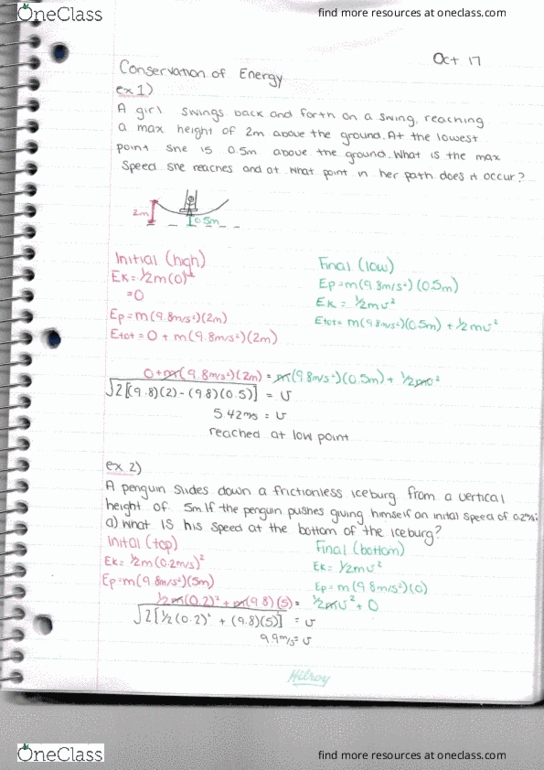 OneClass
find more resources at oneclass.com
Oct 17
Conservation of Energy
ex 1)
A girl swings back and forth on a swing, reaching
a max height of 2m above the ground. At the lowest
point she is 0.5m above the ground. What is the max
speed she reaches and at what point in her path does it occur?
2m
0.5m
Initial (high)
Ek = 1/2m(0)²
=0
Ep = m(9.8m/s²)(2m)
Etot = 0 + m(9.8m/s²)(2m)
Final (low)
Ep = m(9.8m/s²)(0.5m)
Ek = 1/2mv²
Etot = m(9.8m/s²)(0.5m) + 1/2mv²
0 + m(9.8m/s²)(2m) = m(9.8m/s²)(0.5m) + 1/2mv²
√2[(9.8)(2) - (9.8)(0.5)] = v
5.42m/s = v
reached at low point
ex 2)
A penguin slides down a frictionless iceburg from a vertical
height of 5m. If the penguin pushes giving himself an inital speed of 0.2m/s
a) What is his speed at the bottom of the iceburg?
Inital (top)
Ek = 1/2m(0.2m/s)²
Ep = m(9.8m/s²)(5m)
Final (bottom)
Ek = 1/2mv²
Ep = m(9.8m/s²)(0)
1/2m(0.2)² + m(9.8)(5) = 1/2mv² + 0
√2[1/2(0.2)² + (9.8)(5)] = v
9.9m/s = v
Hilroy
OneClass
find more resources at oneclass.com